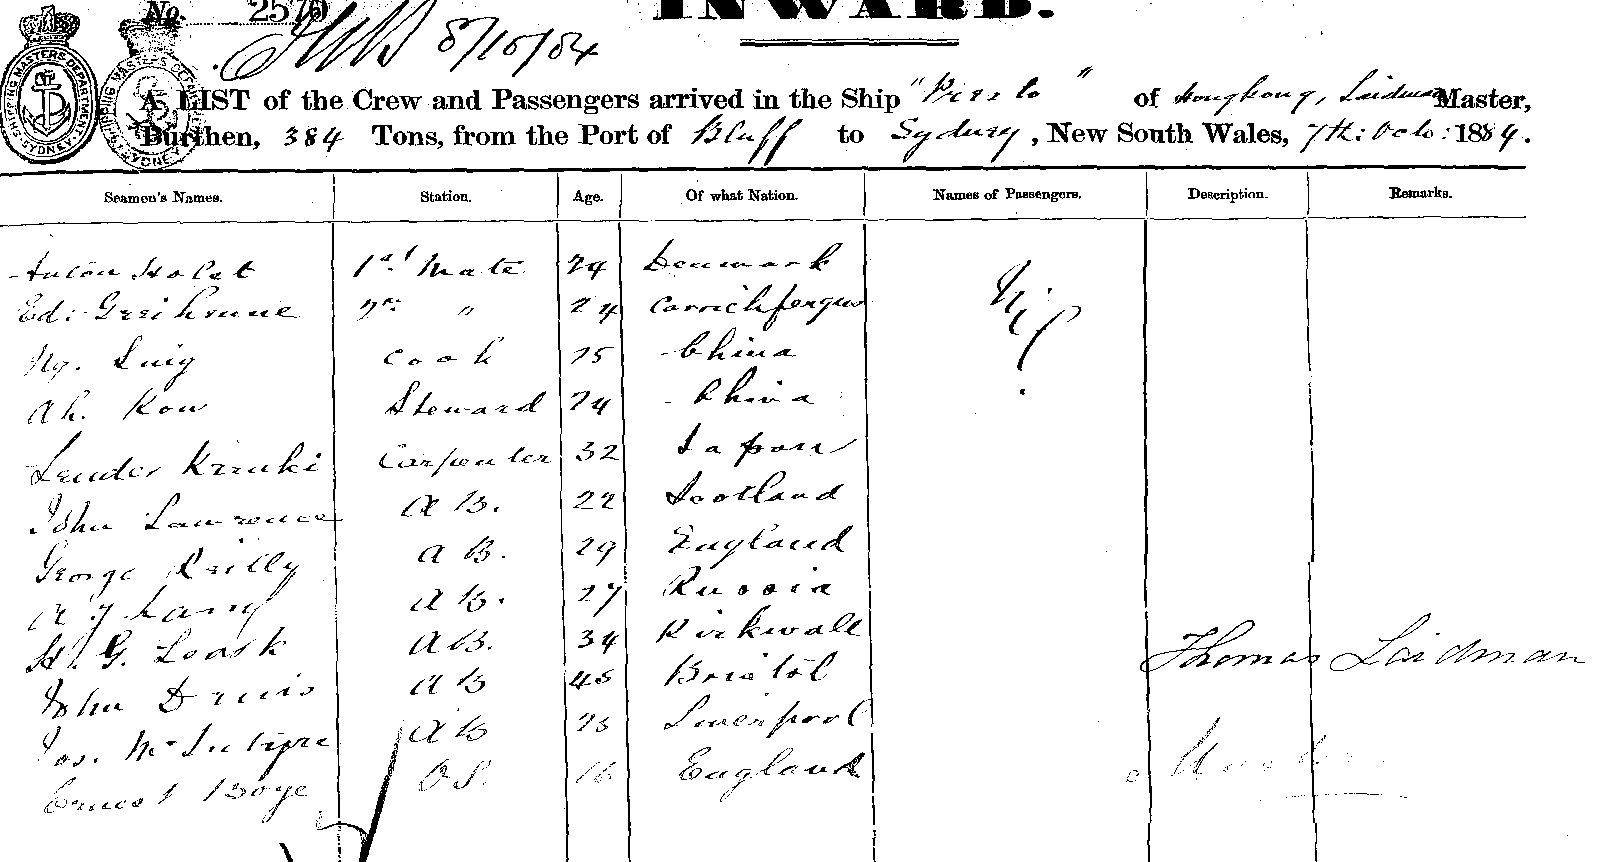 No. 2570
INWARD.
8/10/84
A LIST of the Crew and Passengers arrived in the Ship " " of Hongkong, Laidman Master,
Burthen, 384 Tons, from the Port of Bluff to Sydney, New South Wales, 7th: Octo: 1884.
Seamen's Names. Station. Age. Of what Nation. Names of Passengers. Description. Remarks.
Anton Holst 1st Mate 24 Denmark Nil
Ed: 2nd " 24 Carrickfergus
Ng. 25 Cook China
Ah. Kow Steward 24 China
Carpenter 32 Japan
John Lawrence A B. 22 Scotland
George Reilly A B. 29 England
A B. 27 Russia
G. Leask A B. 34 Kirkwall
Thomas Laidman
John A B 45 Bristol
Jos. McIntyre A B 23 Liverpool
Ernest Boye O S. 16 England
Master
SHIPPING MASTERS DEPARTMENT SYDNEY
SHIPPING MASTERS DEPARTMENT SYDNEY